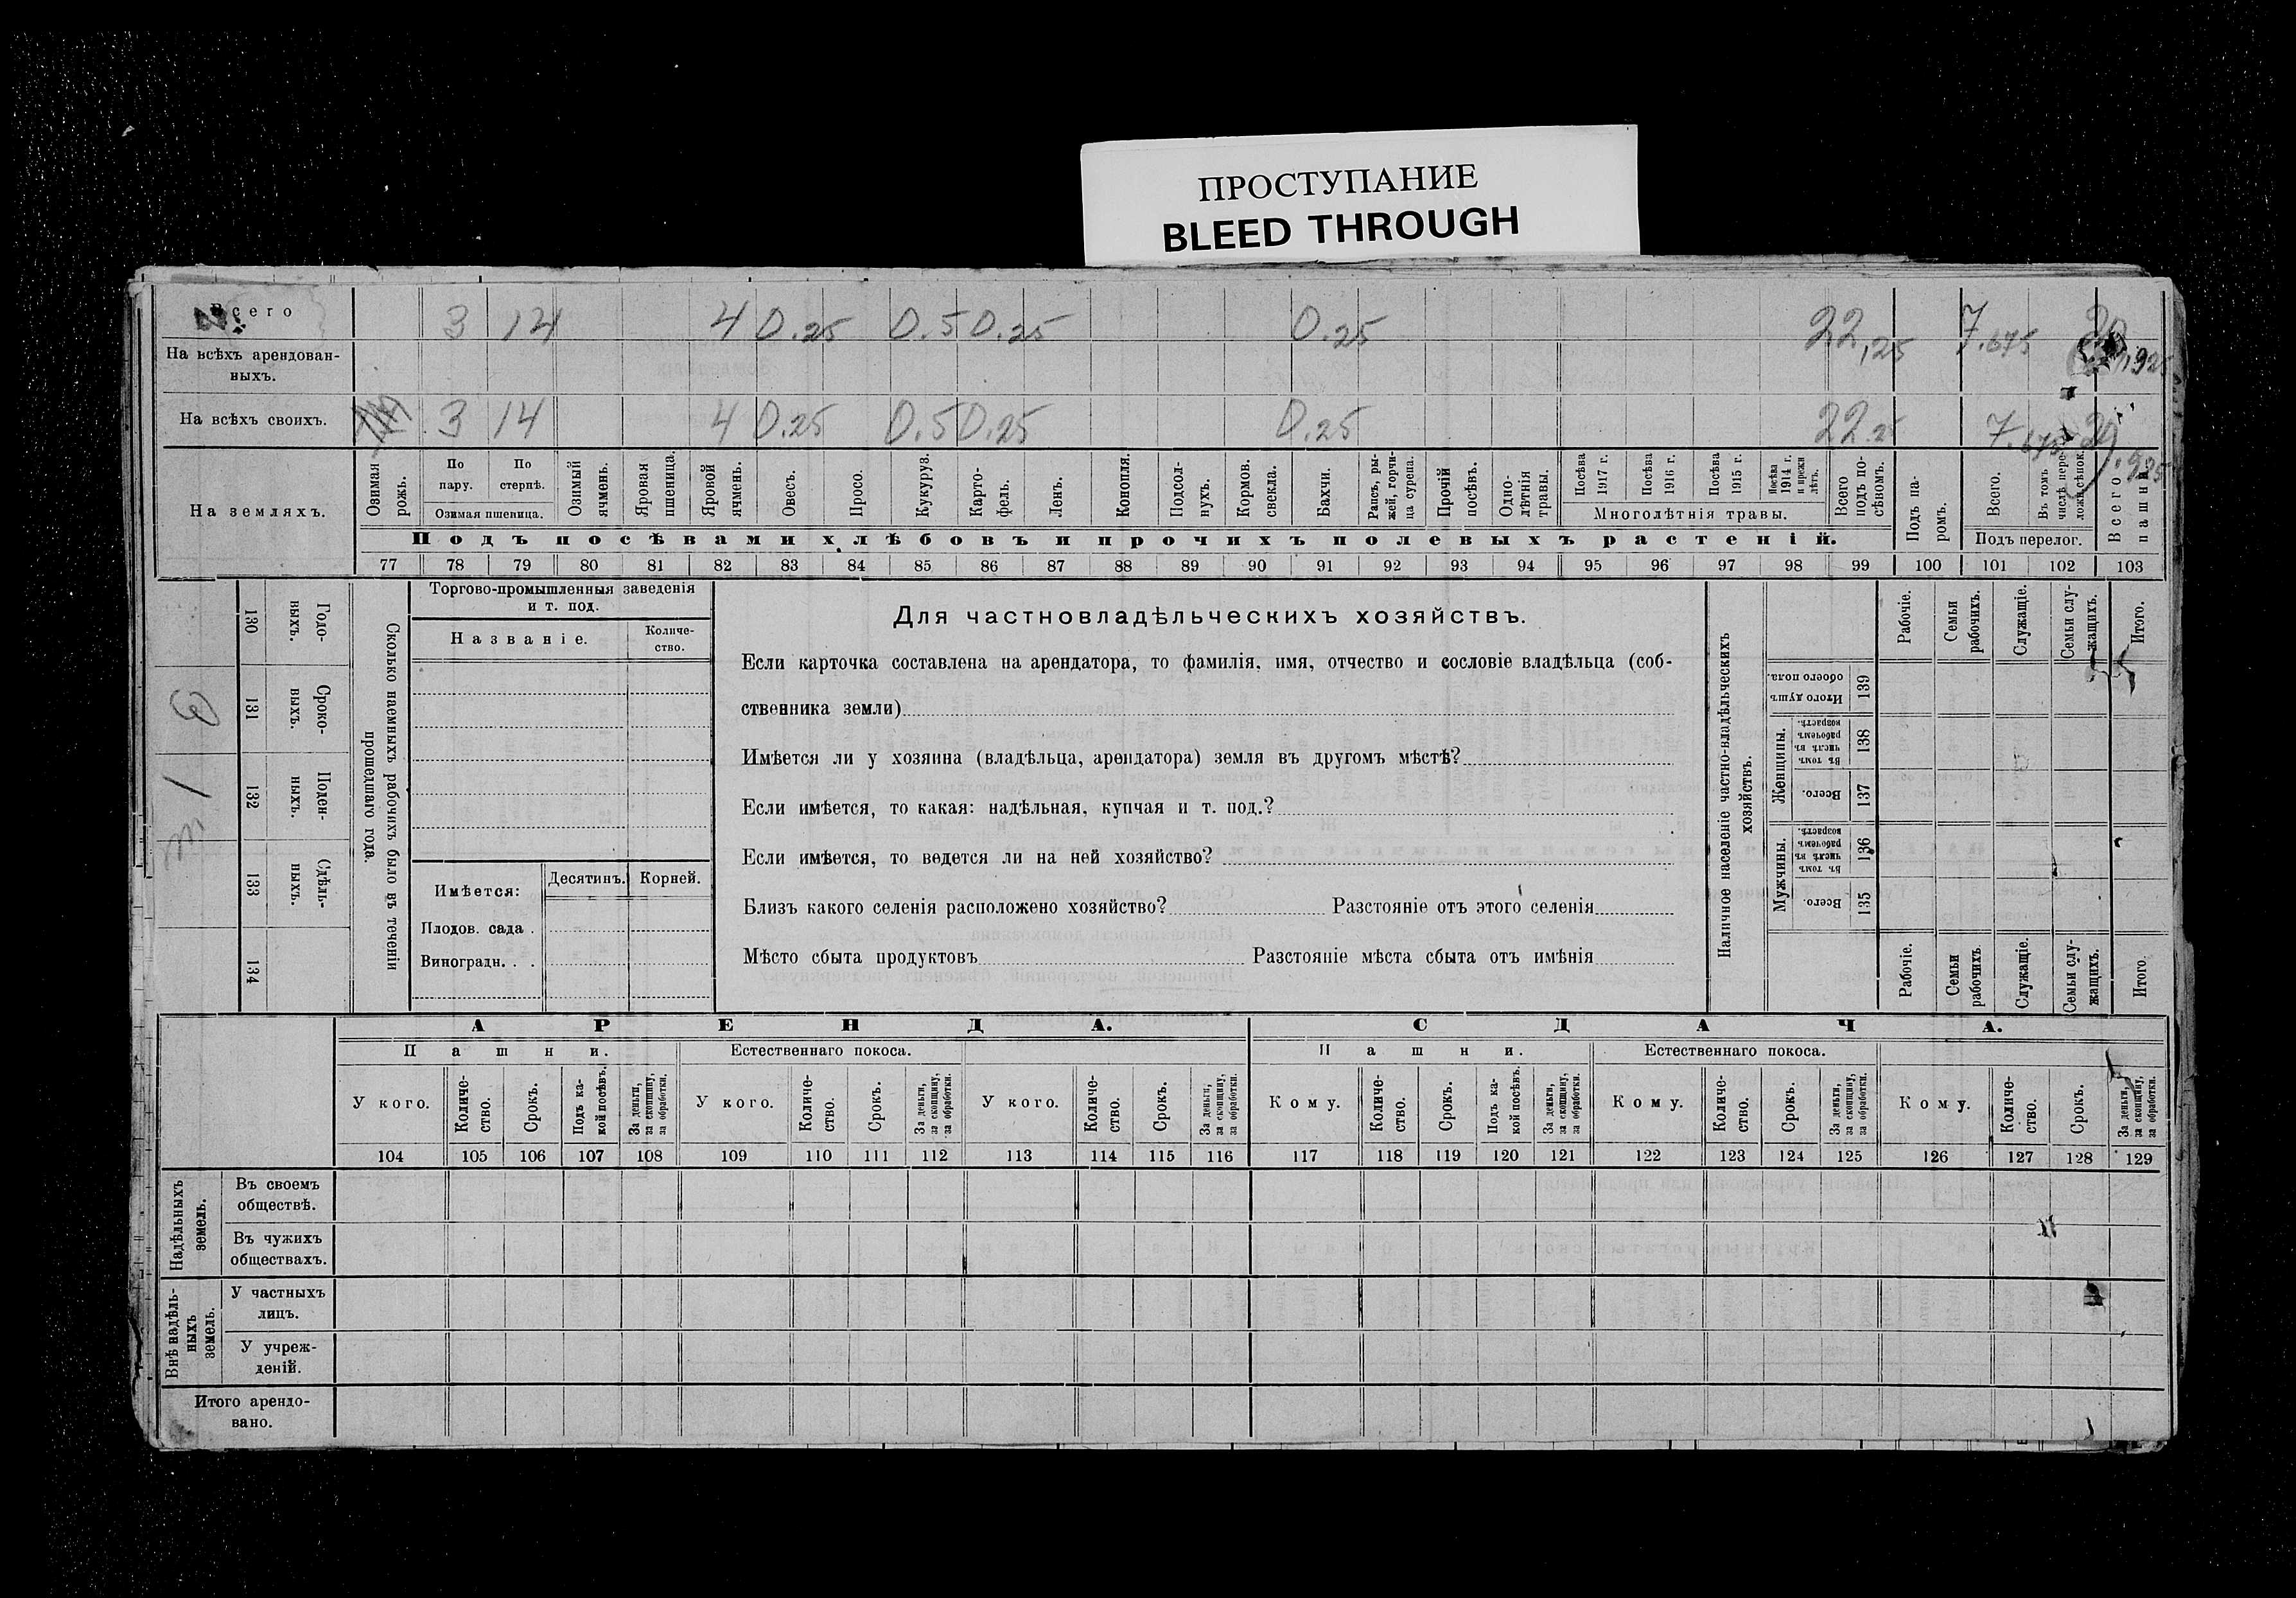 ПРОСТУПАНИЕ
BLEED THROUGH
Всего 3 14 4 0.25 0.5 0.25 0.25 22,25 7.675
На всѣхъ арендован-
ныхъ.
На всѣхъ своихъ. 3 14 4 0.25 0.5 0.25 0.25 22.25 7.675 29.925
На земляхъ.
Озимая рожь.
По пару.
По стернѣ.
Озимая пшеница.
Озимый ячмень.
Яровая пшеница.
Яровой ячмень.
Овесъ.
Просо.
Кукуруз.
Карто-
фель.
Ленъ.
Конопля.
Подсол-
нухъ.
Кормов. свекла.
Бахчи.
Рапсъ, ры-
жей, горчи-
ца сурепа.
Прочій посѣвъ.
Одно-
лѣтнія травы.
Посѣва 1917 г.
Посѣва 1916 г.
Посѣва 1915 г.
Посѣва 1914 г. и прежн лѣтъ.
Многолѣтнія травы.
Всего подъ по-
сѣвомъ.
Подъ па-
ромъ.
Всего.
Въ томъ числѣ пере-
ложн сѣнок.
Подъ перелог.
Всего пашни.
Подъ посѣвами хлѣбовъ и прочихъ полевыхъ растеній.
77 78 79 80 81 82 83 84 85 86 87 88 89 90 91 92 93 94 95 96 97 98 99 100 101 102 103
130 Годо-
выхъ.
131 Сроко-
выхъ.
132 Поден-
ныхъ.
133 Сдѣль-
ныхъ.
134
Сколько наемныхъ рабочихъ было въ теченіи
прошедшаго года.
Торгово-промышленныя заведенія
и т. под.
Названіе.
Количе-
ство.
Имѣется:
Десятинъ. Корней.
Плодов. сада .
Виноградн. . .
Для частновладѣльческихъ хозяйствъ.
Если карточка составлена на арендатора, то фамилія, имя, отчество и сословіе владѣльца (соб-
ственника земли)
Имѣется ли у хозяина (владѣльца, арендатора) земля въ другомъ мѣстѣ?
Если имѣется, то какая: надѣльная, купчая и т. под.?
Если имѣется, то ведется ли на ней хозяйство?
Близъ какого селенія расположено хозяйство? Разстояніе отъ этого селенія
Мѣсто сбыта продуктовъ Разстояніе мѣста сбыта отъ имѣнія
Наличное населеніе частно-владѣльческихъ
хозяйствъ.
Рабочіе.
Семьи рабочихъ.
Служащіе.
Семьи слу-
жащихъ.
Итого.
Итого душъ обоего пола. 139
Женщины.
Въ томъ числѣ въ рабочемъ возрастѣ. 138
Всего. 137
Мужчины.
Въ томъ числѣ въ рабочемъ возрастѣ. 136
Всего. 135
Рабочіе.
Семьи рабочихъ
Служащіе.
Семьи слу-
жащихъ.
Итого
АРЕНДА. СДАЧА.
Пашни. Естественнаго покоса. Пашни. Естественнаго покоса.
У кого.
Количе-
ство.
Срокъ.
Подъ ка-
кой посѣвъ.
За деньги, за скопщину, за обработки.
У кого.
Количе-
ство.
Срокъ.
За деньги, за скопщину, за обработки.
У кого.
Количе-
ство.
Срокъ.
За деньги, за скопщину, за обработки.
Кому.
Количе-
ство.
Срокъ.
Подъ ка-
кой посѣвъ.
За деньги, за скопщину, за обработки.
Кому.
Количе-
ство.
Срокъ.
За деньги, за скопщину, за обработки.
Кому.
Количе-
ство.
Срокъ.
За деньги, за скопщину, за обработки.
104 105 106 107 108 109 110 111 112 113 114 115 116 117 118 119 120 121 122 123 124 125 126 127 128 129
Надѣльныхъ земель.
Въ своемъ
обществѣ.
Въ чужихъ
обществахъ.
Внѣ надѣль-
ныхъ земель.
У частныхъ
лицъ.
У учреж-
деній.
Итого арендо-
вано.